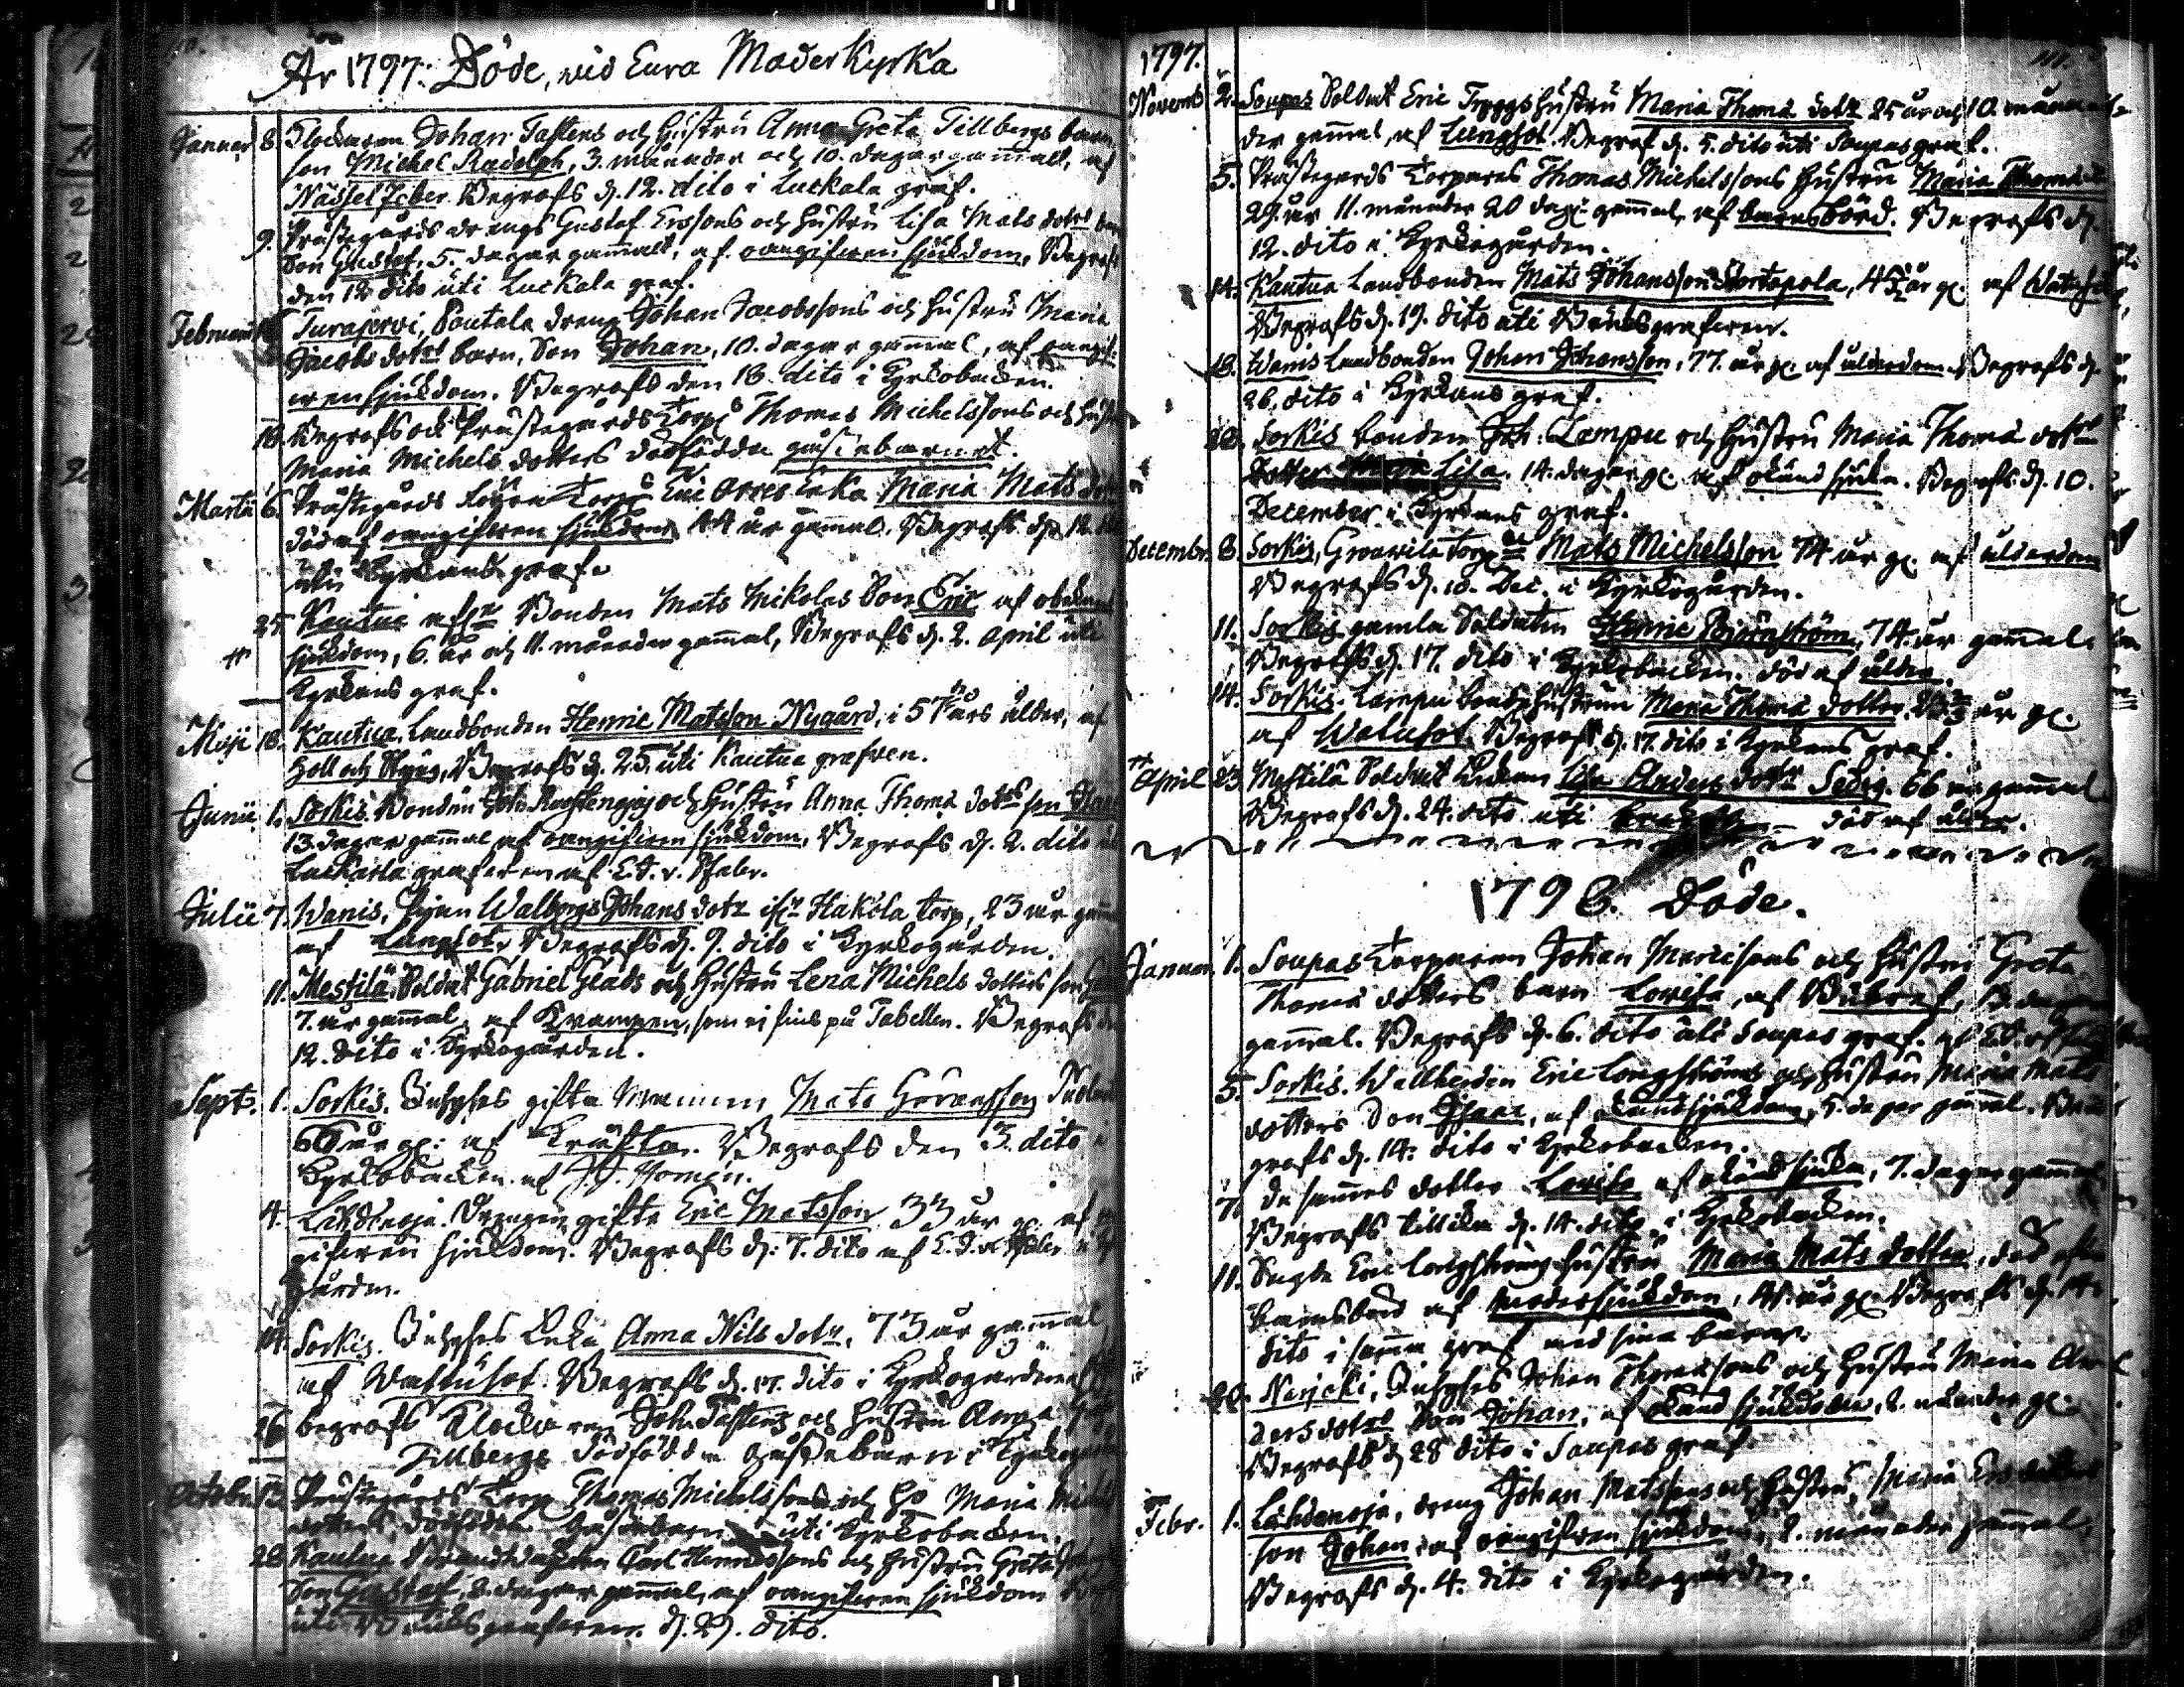 År 1797. Döde, wid Eura Moderkyrka
Januar 8. Klockaren Johan Fastens och hustru Anna Greta Tillbergs barn
son Michel Rudolph, 3. månader och 10. dagar gammalt, af
Nässel feber. Begrofs d. 12. dito i Luckala graf.
9. Prästegårds drengs Gustaf Erssons och hustru Lisa Mats dotrs
Son Gustaf, 5. dagar gammalt, af oangifven sjukdom, Begrofs
den 12 dito uti Luckala graf.
Februari Turajervi, Pautala dreng Johan Jacobssons och hustru Maria
Jacobs dotrs barn, Son Johan, 10. dagar gammal, af oangif-
wen sjukdom. Begrofs den 18. dito i Kyrkobacken.
18. Begrofs ock Prästegårds Torp Thomas Michelssons och hustru
Maria Michels dotters dödfödda gåssebarnet.
Martii 6. Prästegårds Torp Eric Enka Maria Mats dotr
död af oangifven sjukdom 44 år gammal. Begrofs d. 12.
uti Kyrkans graf.
25. Kautua Bonden Mats Mikolas Son Eric af obekant
sjukdom, 6. år och 11. månader gammal, Begrofs d. 2. April uti
Kyrkans graf.
Maji 18. Kautua, Landbonden Henric Matsson Nygård, i 57 års ålder, af
Håll och Styng, Begrofs d. 25. uti Kautua grafven.
Junii 1. Sorkis Bonden Joh. och hustru Anna Thomæ dotrs son
13. dagar gammal af oangifven sjukdom, Begrofs d. 2. dito
Luckala grafven af E. A. v. Pfaler.
Julii 7. Wanis, Pigan Walborg Johans dotr Hakola torp, 23 år
af Lungsot. Begrofs d. 9. dito i Kyrkogården.
11. Mestilä, Soldat Gabriel Glads och hustru Lena Michels dotters son
7. år gammal, af Krampen, som ei fins på Tabellen. Begrofs
12. dito i Kyrkogården.
Sept. 1. Sorkis. Inhyses gifta mannen Mats Göransson
år gl: af Kräfta. Begrofs den 3. dito i
Kyrkobacken af J. J. Homén.
4. Lähdenoja. Drengen gifte Eric Matsson 33 år gl. af
gifven sjukdom. Begrofs d. 7. dito af E. A. v. Pfaler
gården.
14. Sorkis. Inhyses Enka Anna Nils dotr. 73 år gammal
af Wattusot. Begrofs d. 17. dito i Kyrkogården
26 begrofs Klockaren Joh. Fastens och hustru Anna
Tillbergs dödfödda gåssebarn i Kyrko
Octobr. 13. Prästegårds Torp Thomas Michelssons och h:o Maria Michels
dotters dödfödda gåssebarn uti Kyrkobacken.
28. Kautua Carl Hennessons och hustru Greta
Son Gustaf, 2. dagar gammal, af oangifven sjukdom
uti grafven. d. 29. dito.
111.
1797.
Novemb 2. Soupas Soldat Eric Tryggs hustru Maria Thomæ dotr 25 år och 10. måna-
der gammal, af Lungsot. Begrof d. 5. dito uti Soupas graf.
5. Prästegårds Torparens Thomas Michelssons hustru Maria
29. år 11. månader 20 dagar gammal, af barnsbörd. Begrofs d.
12. dito i Kyrkogården.
14. Kautua Landbonden Mats Johansson, 45 år gl. af
Begrofs d. 19. dito uti grafven.
18. Wanis Landbonden Johan Johansson, 77. år gl. af ålderdom. Begrofs d.
26. dito i Kyrkans graf.
Sorkis bonden Joh: Lempu och hustru Maria Thomæ dotrs
Dotter Lisa. 14. dagar gl. af okänd sjuka. Begrofs d. 10.
December i Kyrkans graf.
Decembr. 8. Sorkis, Torp Mats Michelsson 74 år gl. af ålderdom
Begrofs d. 10. Dec. i Kyrkogården.
11. Sorkis gamla Soldaten Henric Björnström, 74 år gammal.
Begrofs d. 17. dito i Kyrkobacken. död af ålder.
14. Sorkis. Lempu bonds hustrun Maria Thomæ dotter år gl.
af Wattusot. Begrofs d. 17. dito i Kyrkans graf.
April 23 Mestilä Soldat Enkan Lisa Anders dotr Sedig. 66 år gammal
Begrofs d. 24. dito uti död af ålder.
1798. Döde.
Januar. 1. Soupas Torparen Johan Maricsons och hustru Greta
Thomæ dotters barn Lovisa, af dagar
gammal. Begrofs d. 6. dito uti Soupas graf.
5. Sorkis. Wallherden Eric Longströms och hustru Maria Mats
dotters Son Isaac, af okänd sjukdom, 5. dagar gammal. Be-
grofs d. 14. dito i Kyrkobacken.
7. De sammas dotter Lovisa af okänd sjuka, 7. dagar gammal
Begrofs tillika d. 14. dito i Kyrkobacken.
11. Sagde Eric Longströms hustru Maria Mats dotter, död efter
barnsbörd af modersjukdom, år gl. Begrofs d. 14.
dito i samma graf med sina barn.
Nerjecki, Inhyses Johan Thomæsons och hustru Maria An-
ders dotrs Son Johan, af okänd sjukdom, 2. månader gl.
Begrofs d 28 dito i Soupas graf.
Febr. 1. Lähdenoja, dreng Johan Matssons och hustru Maria Ers dotters
son Johan, af oangifven sjukdom, 2. månader gammal,
Begrofs d. 4. dito i Kyrkogården.